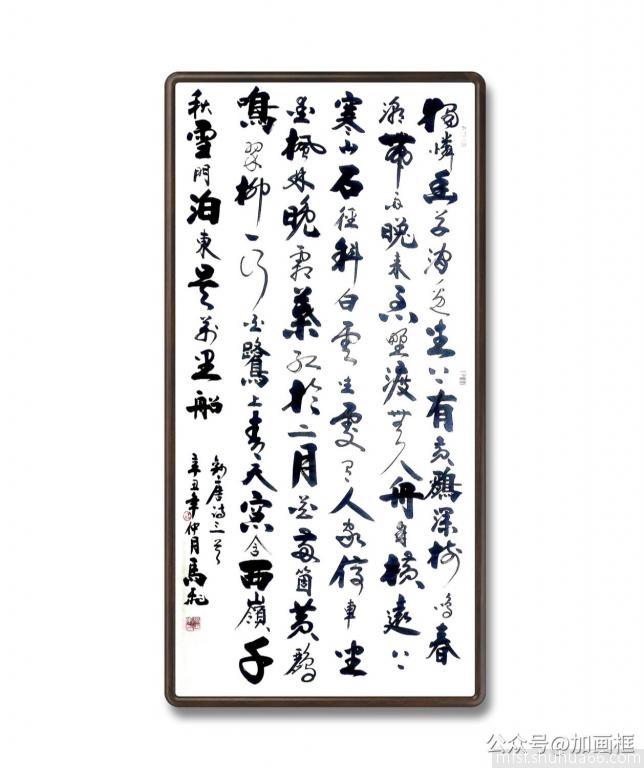 獨憐幽草澗邊生上有黄鸝深樹鳴春
潮帶雨晚来急野渡無人舟自橫遠上
寒山石徑斜白雲生處有人家停車坐
愛楓林晚霜葉紅於二月花兩箇黄鸝
鳴翠柳一行白鷺上青天窗含西嶺千
秋雪門泊東吳萬里船
錄唐詩三首
辛丑年仲月馬
公众号@加画框